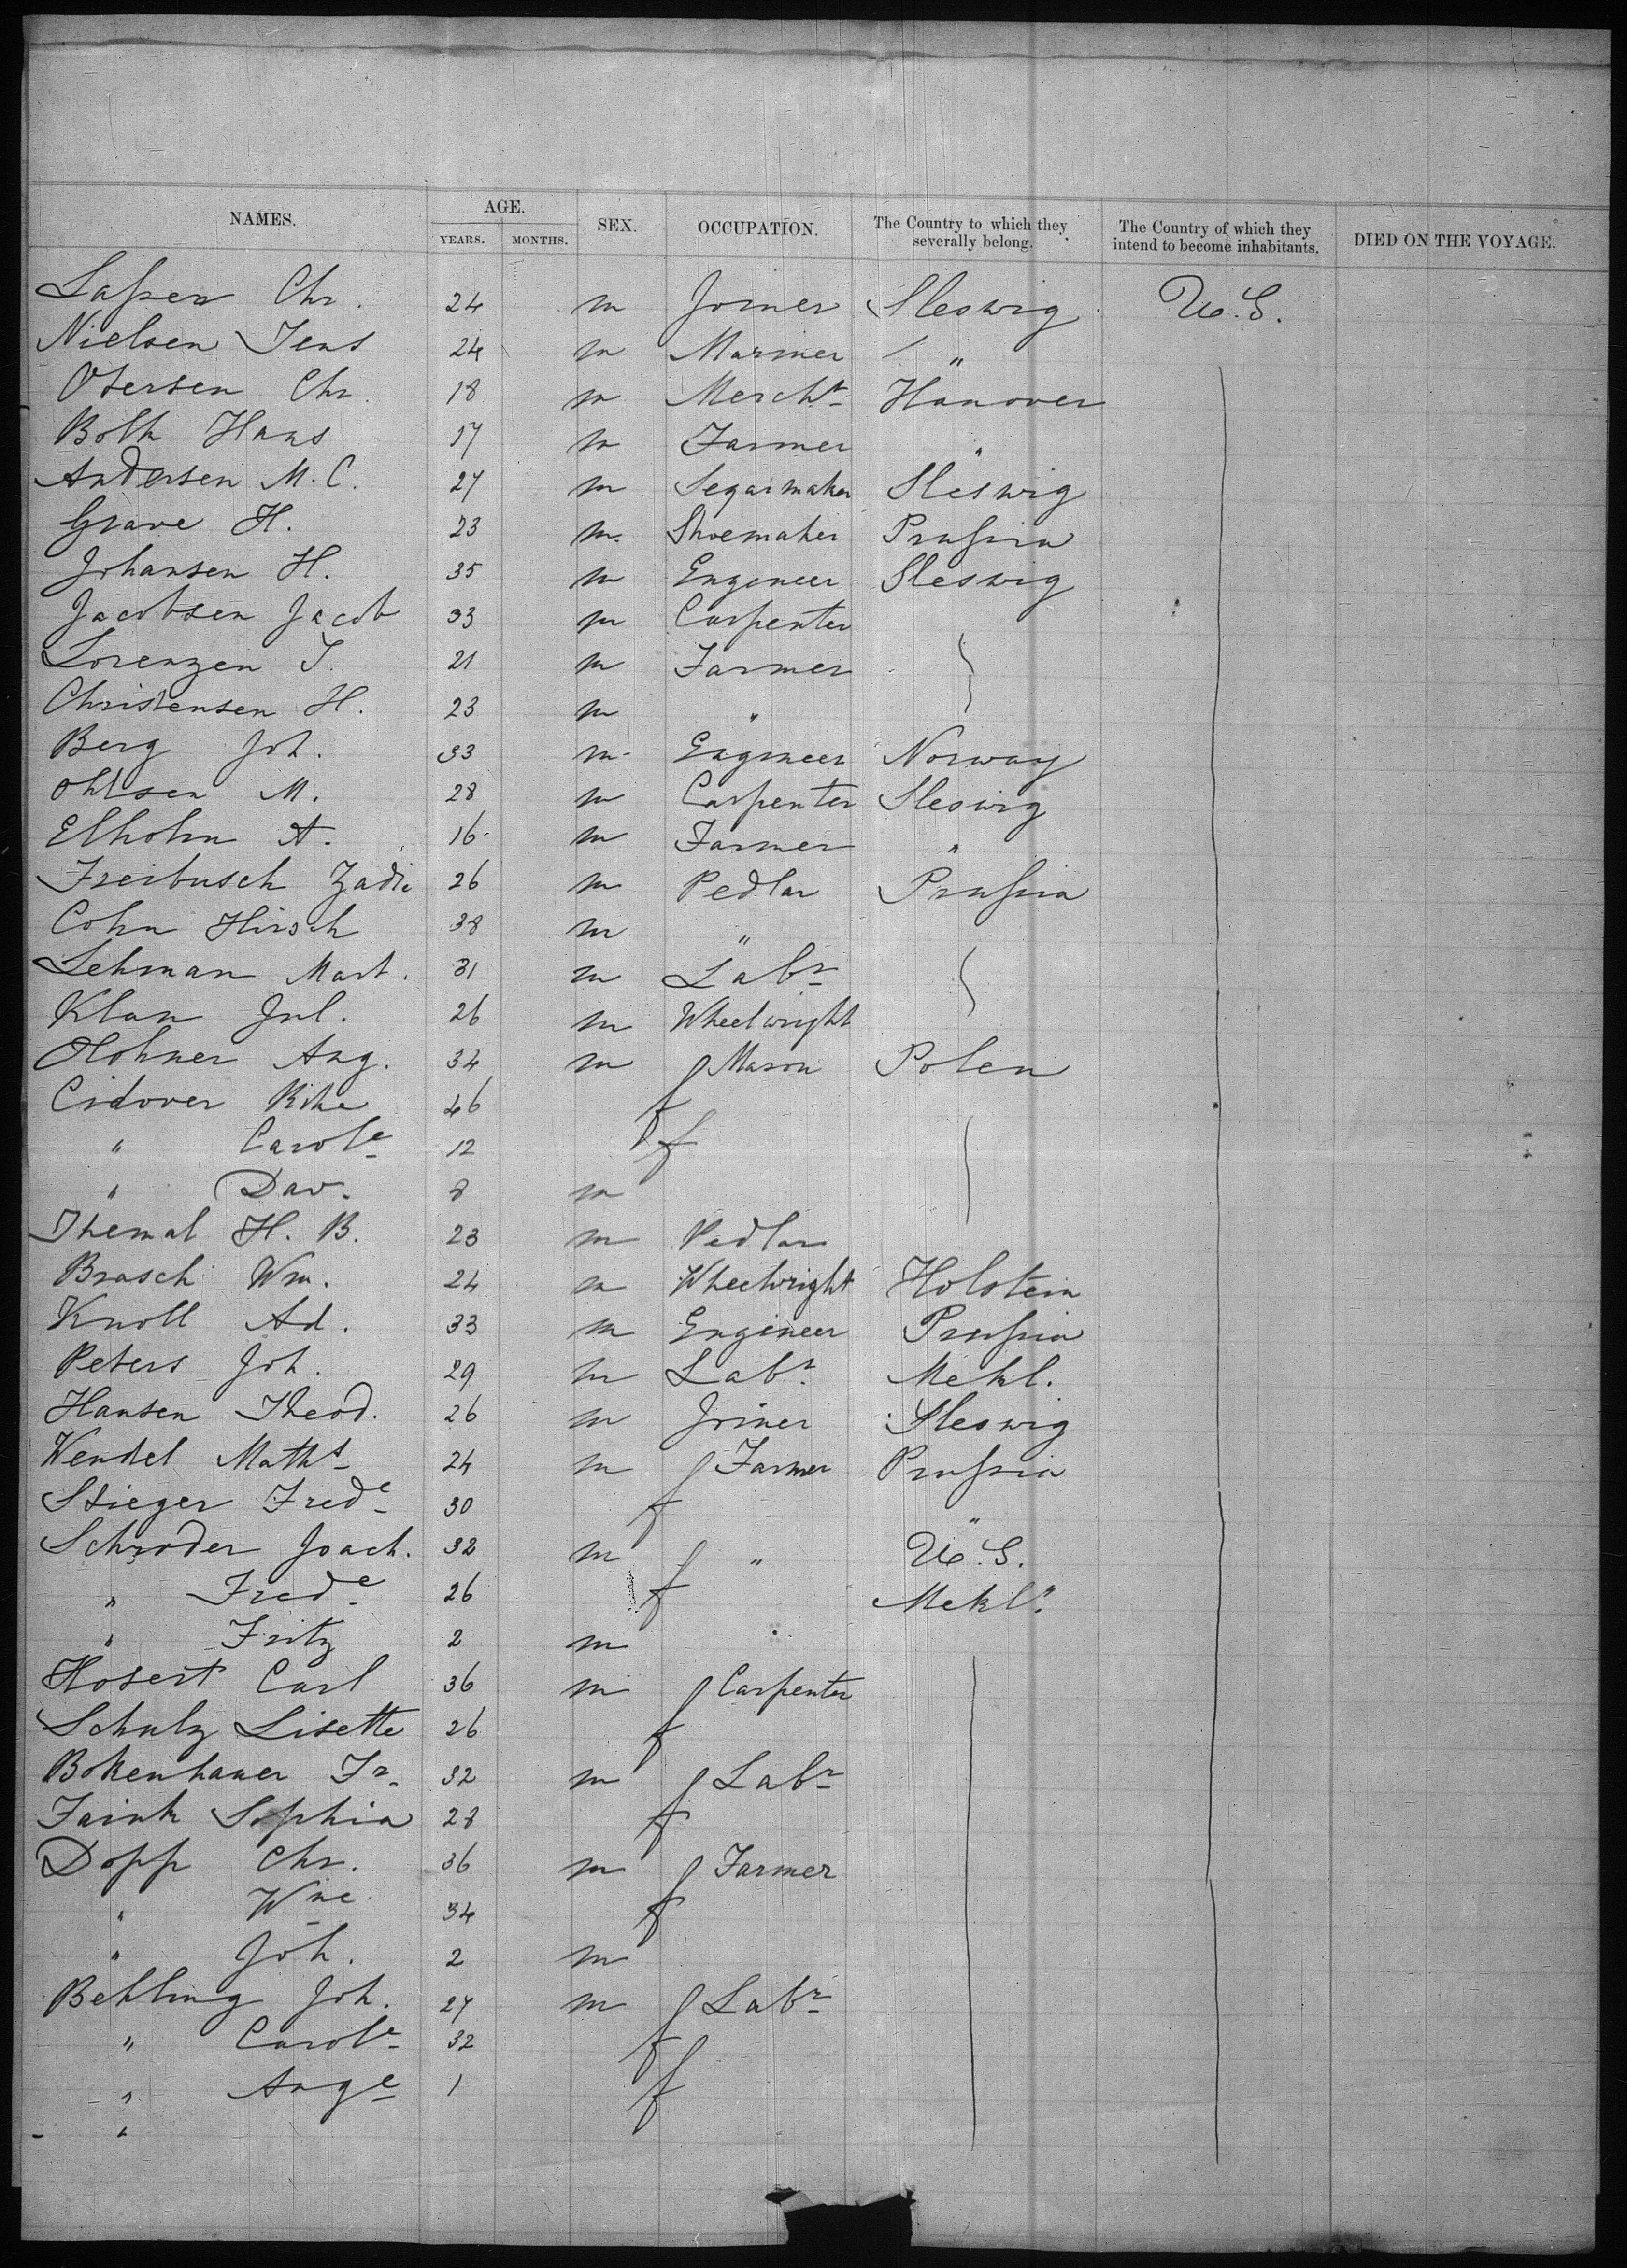 NAMES. AGE. SEX. OCCUPATION. The Country to which they severally belong. The Country of which they intend to become inhabitants. DIED ON THE VOYAGE.
YEARS. MONTHS.
Laſsen Chr. 24 m Joiner Sleswig U.S.
Nielsen Jens 24 m Mariner "
Otersen Chr. 18 m Merchᵗ Hanover
Both Hans 17 m Farmer "
Andersen M. C. 27 m Segarmaker Sleswig
Grave H. 23 m. Shoemaker Pruſsia
Johansen H. 35 m Engineer Sleswig
Jacobsen Jacob 33 m Carpenter
Lorenzen J. 21 m Farmer
Christensen H. 23 m "
Berg Joh. 33 m Engineer Norway
Ohlsen M. 28 m Carpenter Sleswig
Elholm A. 16 m Farmer "
Freibusch 26 m Pedlar Pruſsia
Cohn Hirsch 38 m "
Lehman Mart. 31 m Labʳ
Klan Jul. 26 m Wheelwright
Aug. 34 m Mason Polen
Cidover Rike 46 f
" Carolᵉ 12 f
" Dav. 8 m
H. B. 23 m Pedlar
Brasch Wm. 24 m Wheelwright Holstein
Knoll Ad. 33 m Engineer Pruſsia
Peters Joh. 29 m Labʳ Mekl.
Hansen Theod. 26 m Joiner Sleswig
Wendel Mathˢ 24 m Farmer Pruſsia
Stieger Fredᵉ 30 f "
Schroder Joach. 32 m " U.S.
" Fredᵉ 26 f Mekl.
" Fritz 2 m
Hosert Carl 36 m Carpenter
Schulz Lisette 26 f
Bokenhauer Fr. 32 m Labʳ
Sophia 28 f
Dopp Chr. 36 m Farmer
" Wne 34 f
" Joh. 2 m
Behling Joh. 27 m Labʳ
" Carolᵉ 32 f
" Augᵉ 1 f
"